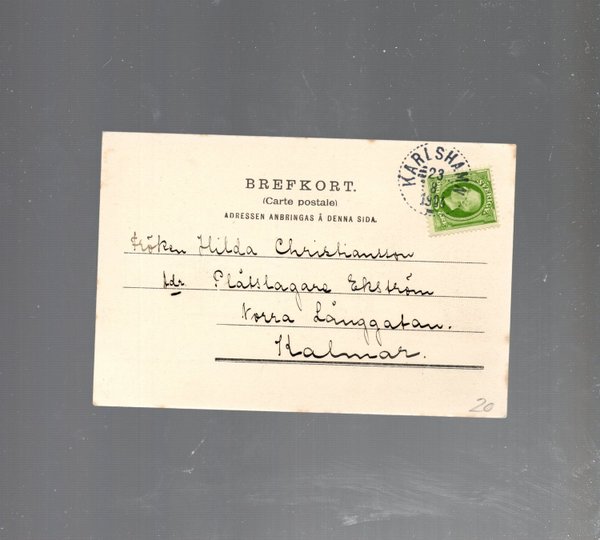 BREFKORT.
(Carte postale)
ADRESSEN ANBRINGAS Å DENNA SIDA.
KARLSHAMN
23
190
SVERIGE
Fröken Hilda Christiansson
adr. Plåtslagare Ekström
Norra Långgatan.
Kalmar.
20